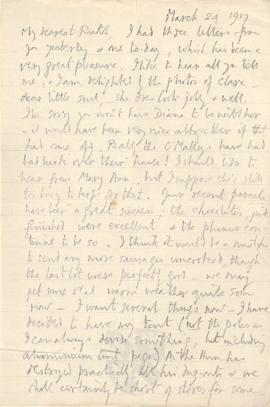 March 24 1917
My dearest Ruth, I had three letters from
you yesterday & one to-day, which has been a
very great pleasure. I like to hear all you tell
me, & am delighted by the photos of Clare
dear little soul, she does look jolly & well.
I'm sorry you won't have Diana to be with her
- it would have been very nice altogether if that
had come off. Really the O'Malleys have had
bad luck over their house! I should like to
hear from Mary Ann, but I suppose she's still
too busy to hope for that. Your recent parcels
have been a great success; the chocolates, just
finished were excellent & the plums con-
tinue to be so. I think it would be a mistake
to send any more sausages uncooked, though
the last lot were perfectly good - we may
get some real warm weather quite soon
now - I want several things now - I have
decided to have my tent (not the poles as
I can always devise something, but including
aluminium tent pegs) As the Hun has
destroyed practically all his dug-outs & we
shall certainly be short of stores for some